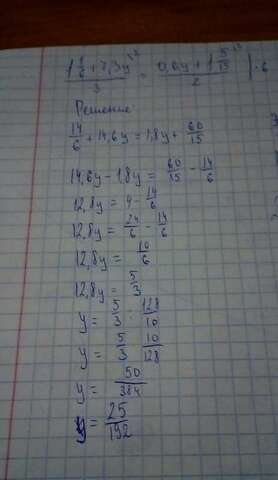 (1 1/6 + 7,3y)/3 \2 = (0,6y + 1 5/15)/2 \3 | · 6
Решение
14/6 + 14,6y = 1,8y + 60/15
14,6y - 1,8y = 60/15 - 14/6
12,8y = 4 - 14/6
12,8y = 24/6 - 14/6
12,8y = 10/6
12,8y = 5/3
y = 5/3 : 128/10
y = 5/3 · 10/128
y = 50/384
y = 25/192